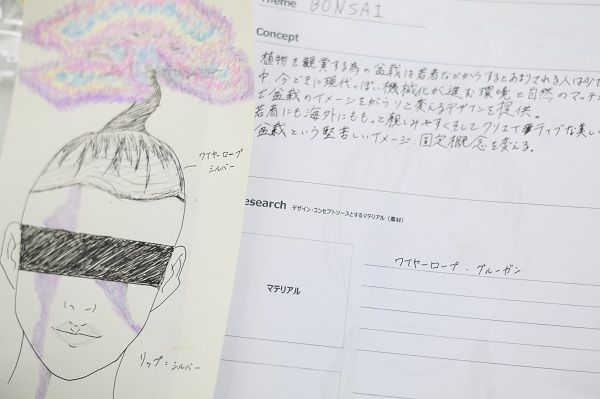 Theme BONSAI
Concept
植物を観賞する為の盆栽は若者などからするとあまりされる人は少
中、今どきに現代っぽい機械化が進む環境と自然のマッチ
で盆栽のイメージをがらりと変えるデザインを提供。
若者にも海外にももっと親しみやすくそしてクリエイティブな美し
盆栽という堅苦しいイメージ、固定概念を変える。
ワイヤーロープ
シルバー
Research デザイン・コンセプトソースとするマテリアル(素材)
マテリアル
ワイヤーロープ・グルーガン
リップ:シルバー